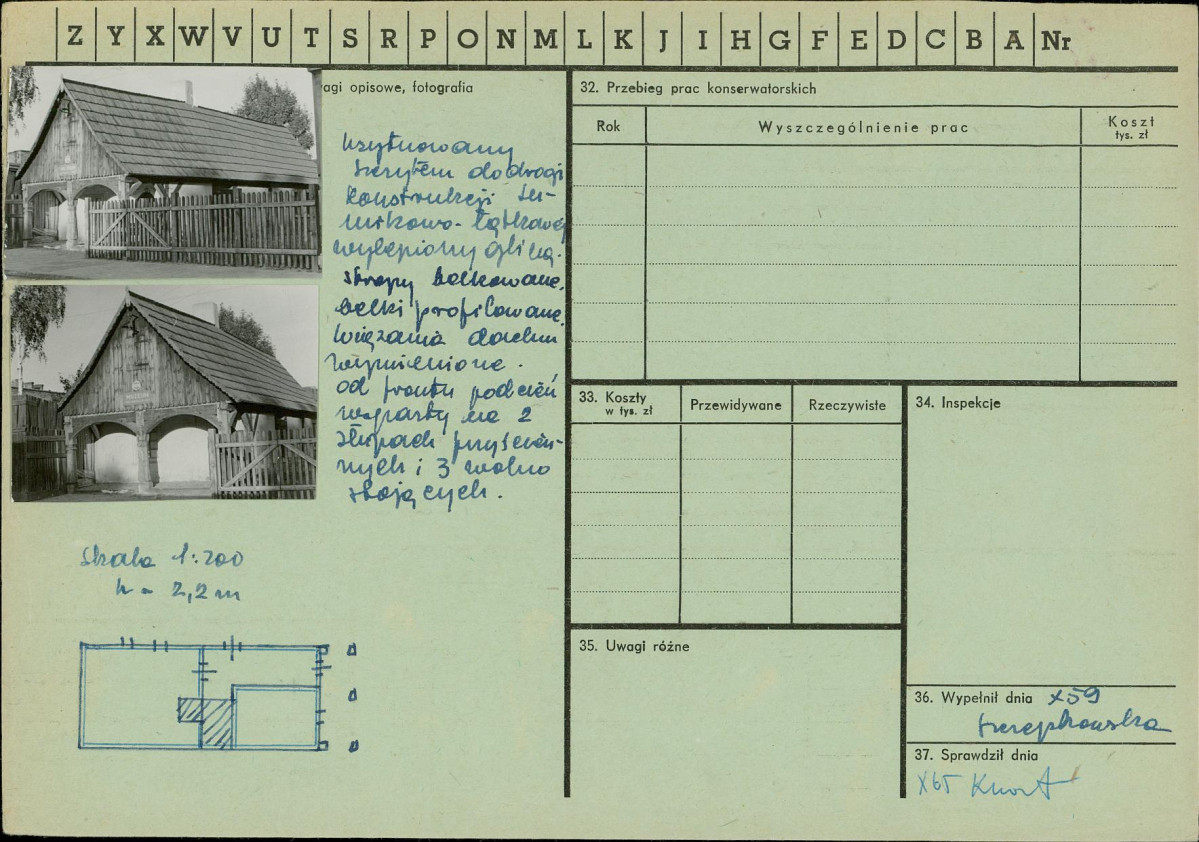 Z Y X W V U T S R P O N M L K J I H G F E D C B A Nr
agi opisowe, fotografia
usytuowany
szczytem do drogi
konstrukcji su-
mikowo-łątkowej
wylepiony gliną.
stropy belkowane,
belki profilowane.
Wiązania dachu
wymienione.
od frontu podcień
wsparty na 2
słupach przyścien-
nych i 3 wolno
stojących.
Skala 1:200
h = 2,2 m
32. Przebieg prac konserwatorskich
Rok
Wyszczególnienie prac
Koszt
tys. zł
33. Koszty
w tys. zł
Przewidywane
Rzeczywiste
34. Inspekcje
35. Uwagi różne
36. Wypełnił dnia X 59
37. Sprawdził dnia
X 65